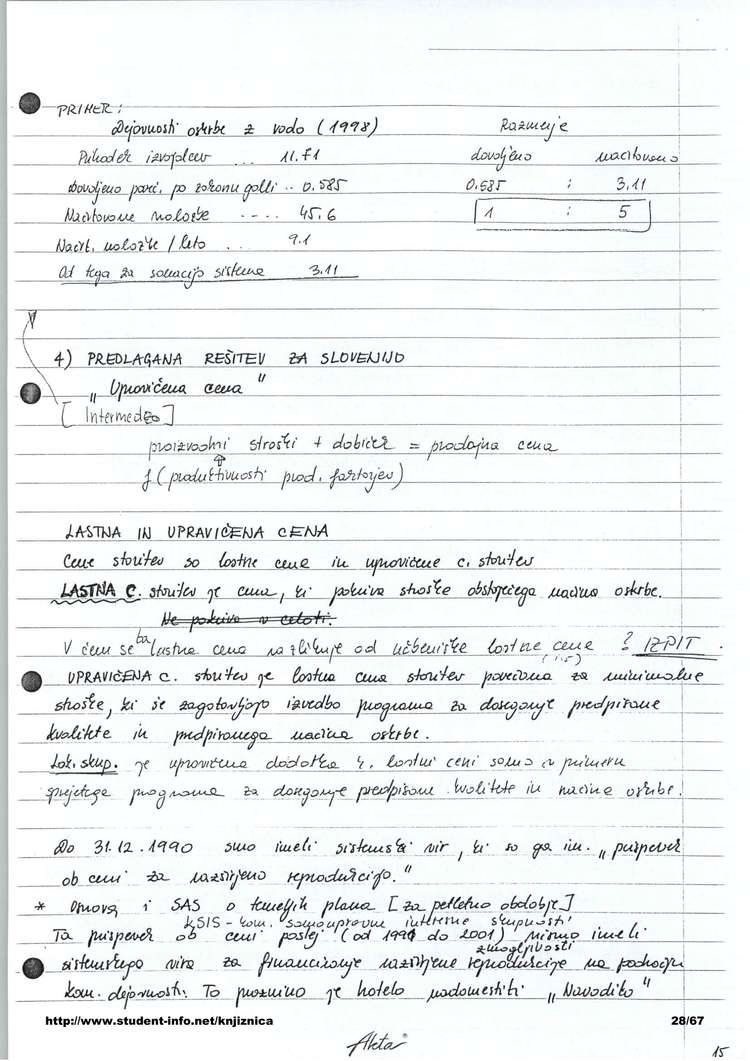 PRIMER:
Dejavnosti oskrbe z vodo (1998)
Razmerje
Prihodek izvajalcev ... 11.71
dovoljeno
načrtovano
Dovoljeno poveč. po zakonu .. 0.585
0.585 : 3.11
Načrtovane naložbe .... 45.6
1 : 5
Načrt. naložbe / leto .. 9.1
Od tega za sanacijo sistema 3.11
4) PREDLAGANA REŠITEV ZA SLOVENIJO
"Upravičena cena"
[Intermedzo]
proizvodni stroški + dobiček = prodajna cena
f (produktivnosti prod. faktorjev)
LASTNA IN UPRAVIČENA CENA
Cene storitev so lastne cene in upravičene c. storitev
LASTNA C. storitev je cena, ki pokriva stroške obstoječega načina oskrbe.
Ne pokriva v celoti.
V čem se ta lastna cena razlikuje od učbeniške lastne cene ? IZPIT.
UPRAVIČENA C. storitev je lastna cena storitev povečana za minimalne
stroške, ki še zagotavljajo izvedbo programa za doseganje predpisane
kvalitete in predpisanega načina oskrbe.
Lok. skup. je upravičena dodatka k lastni ceni samo v primeru
sprejetega programa za doseganje predpisane kvalitete in načina oskrbe.
Do 31.12.1990 smo imeli sistemski vir, ki so ga im. "prispevek
ob ceni za razširjeno reprodukcijo."
* Osnova i SAS o temeljih plana [za petletno obdobje]
KSIS - kom. samoupravne interesne skupnosti
Ta prispevek ob ceni poslej (od 1990 do 2001) nismo imeli
zmogljivosti
sistemskega vira za financiranje razširjene reprodukcije na področju
kom. dejavnosti. To praznino je hotelo nadomestiti "Navodilo"
http://www.student-info.net/knjiznica
28/67
Akta
15